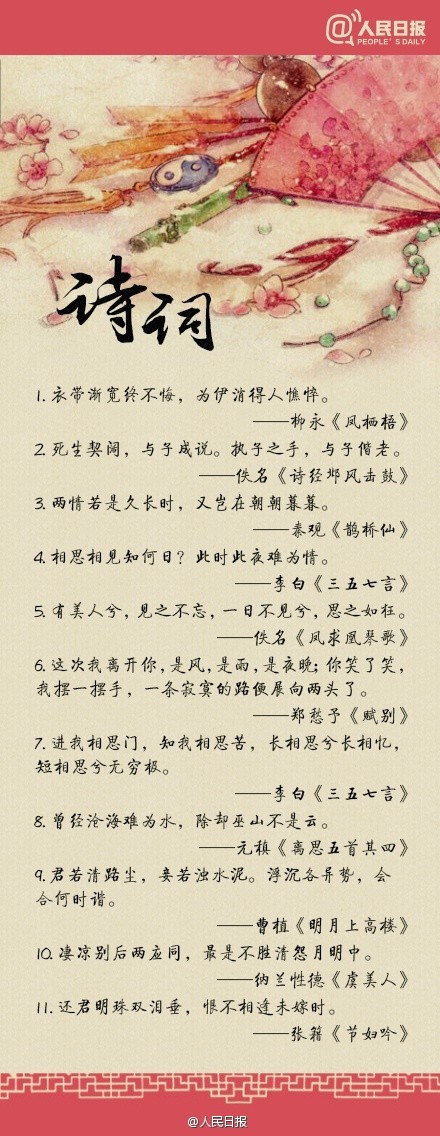 @人民日报
PEOPLE'S DAILY
诗词
1. 衣带渐宽终不悔，为伊消得人憔悴。
——柳永《凤栖梧》
2. 死生契阔，与子成说。执子之手，与子偕老。
——佚名《诗经邶风击鼓》
3. 两情若是久长时，又岂在朝朝暮暮。
——秦观《鹊桥仙》
4. 相思相见知何日？此时此夜难为情。
——李白《三五七言》
5. 有美人兮，见之不忘，一日不见兮，思之如狂。
——佚名《凤求凰琴歌》
6. 这次我离开你，是风，是雨，是夜晚；你笑了笑，
我摆一摆手，一条寂寞的路便展向两头了。
——郑愁予《赋别》
7. 进我相思门，知我相思苦，长相思兮长相忆，
短相思兮无穷极。
——李白《三五七言》
8. 曾经沧海难为水，除却巫山不是云。
——元稹《离思五首其四》
9. 君若清路尘，妾若浊水泥。浮沉各异势，会
合何时谐。
——曹植《明月上高楼》
10. 凄凉别后两应同，最是不胜清怨月明中。
——纳兰性德《虞美人》
11. 还君明珠双泪垂，恨不相逢未嫁时。
——张籍《节妇吟》
@人民日报